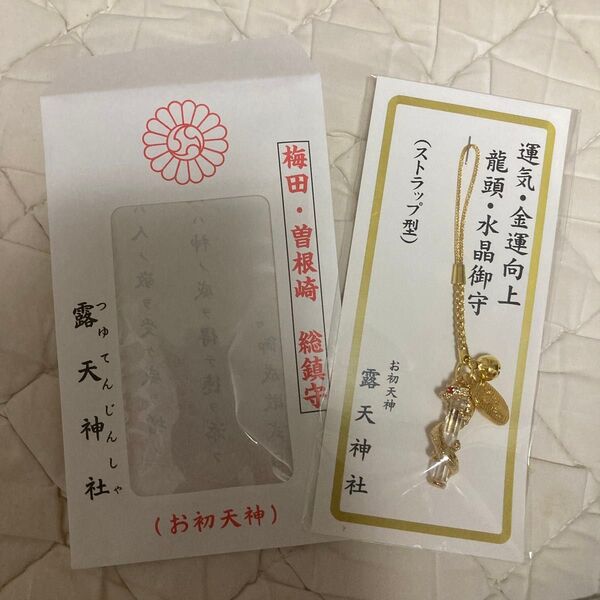 梅田・曽根崎 総鎮守
露天神社
つゆてんじんしゃ
(お初天神)
運気・金運向上
龍頭・水晶御守
(ストラップ型)
お初天神
露天神社